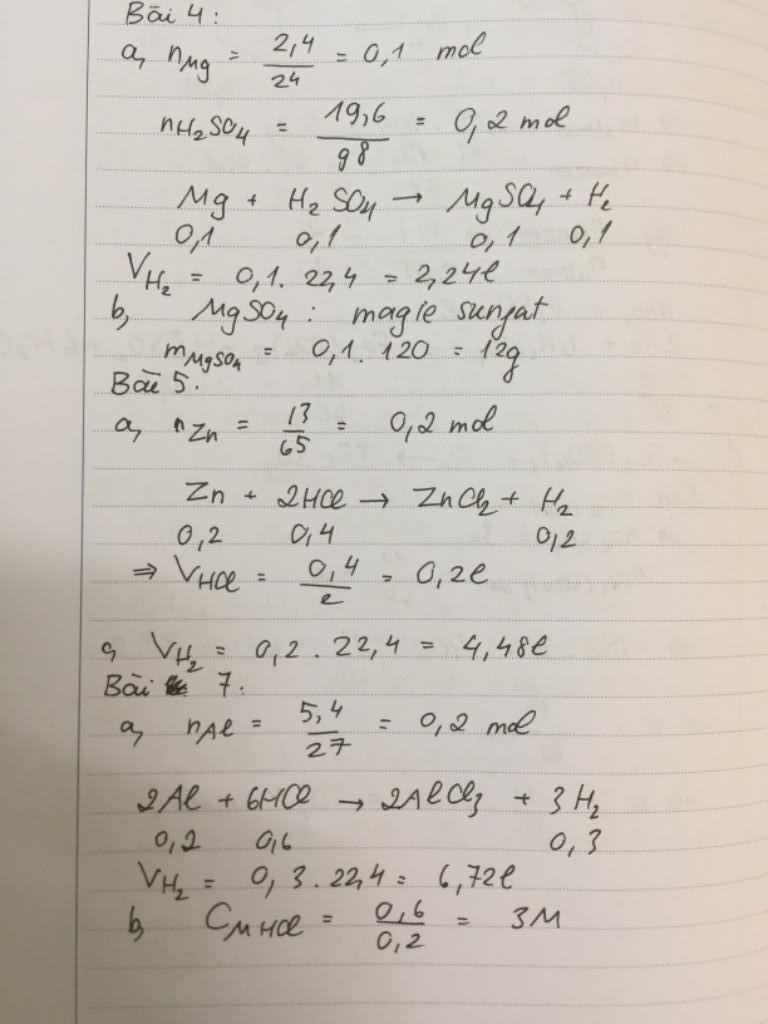 Bài 4:
a, nMg = 2,4/24 = 0,1 mol
nH2SO4 = 19,6/98 = 0,2 mol
Mg + H2SO4 → MgSO4 + H2
0,1 0,1 0,1 0,1
VH2 = 0,1. 22,4 = 2,24l
b, MgSO4: magie sunfat
mMgSO4 = 0,1. 120 = 12g
Bài 5.
a, nZn = 13/65 = 0,2 mol
Zn + 2HCl → ZnCl2 + H2
0,2 0,4 0,2
⇒ VHCl = 0,4/2 = 0,2l
c, VH2 = 0,2 . 22,4 = 4,48l
Bài 7.
a, nAl = 5,4/27 = 0,2 mol
2Al + 6HCl → 2AlCl3 + 3H2
0,2 0,6 0,3
VH2 = 0,3.22,4 = 6,72l
b, CM HCl = 0,6/0,2 = 3M